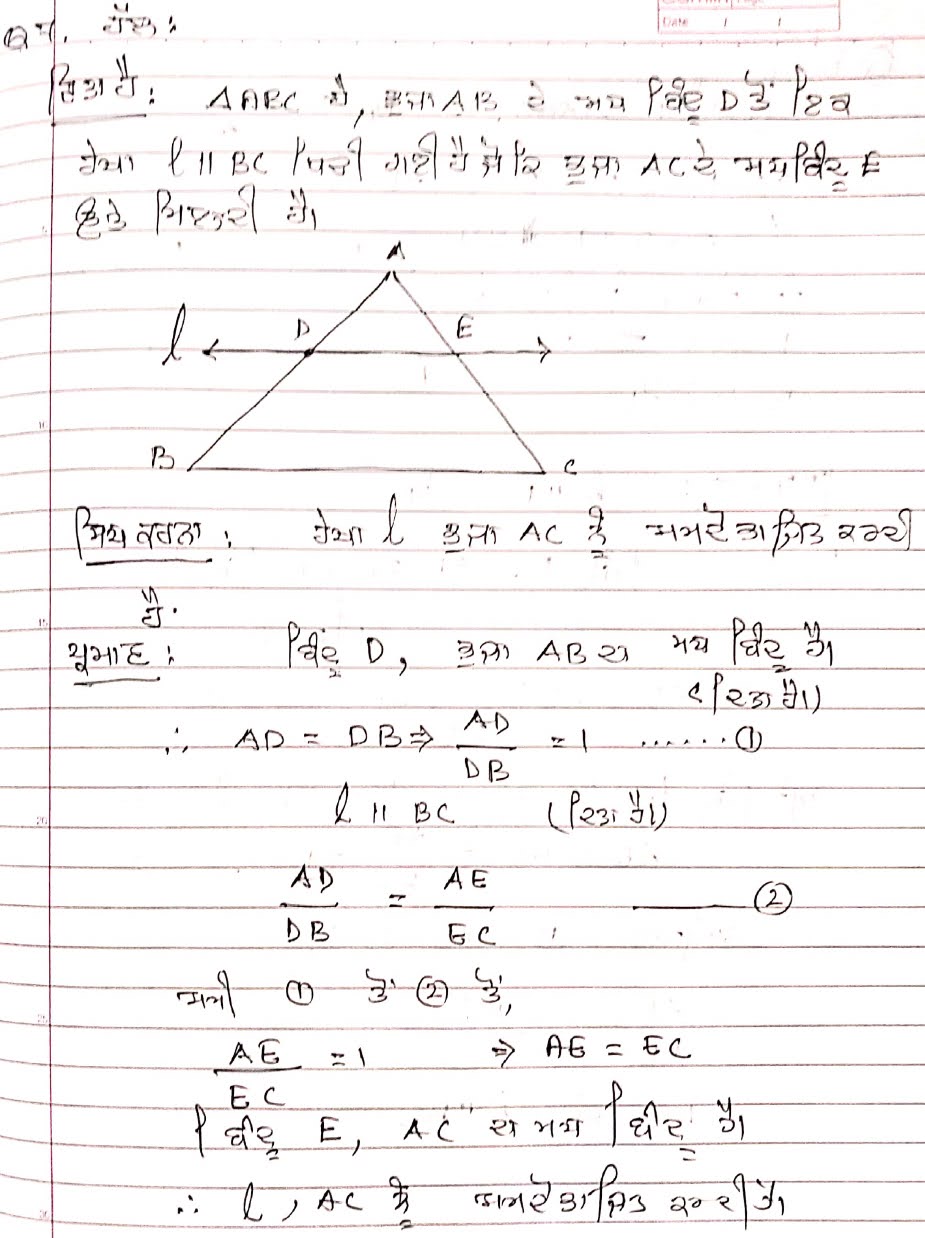 Date / /
Q 7. ਹੱਲ :
ਦਿੱਤਾ ਹੈ : ΔABC ਦੇ, ਭੁਜਾ AB ਦੇ ਮਧ ਬਿੰਦੂ D ਤੋਂ ਇਕ
ਰੇਖਾ l || BC ਖਿੱਚੀ ਗਈ ਹੈ ਜੋ ਕਿ ਭੁਜਾ AC ਦੇ ਮਧ ਬਿੰਦੂ E
ਉੱਤੇ ਮਿਲਦੀ ਹੈ।
A
l D E
B C
ਸਿੱਧ ਕਰਨਾ : ਰੇਖਾ l ਭੁਜਾ AC ਨੂੰ ਸਮਦੋਭਾਜਿਤ ਕਰਦੀ
ਹੈ.
ਪ੍ਰਮਾਣ : ਬਿੰਦੂ D, ਭੁਜਾ AB ਦਾ ਮਧ ਬਿੰਦੂ ਹੈ।
(ਦਿੱਤਾ ਹੈ।)
∴ AD = DB ⇒ AD/DB = 1 ....... ①
l || BC (ਦਿੱਤਾ ਹੈ।)
AD/DB = AE/EC ——— ②
ਸਮੀ ① ਤੋਂ ② ਤੋਂ,
AE/EC = 1 ⇒ AE = EC
ਬਿੰਦੂ E, AC ਦਾ ਮਧ ਬਿੰਦੂ ਹੈ।
∴ l, AC ਨੂੰ ਸਮਦੋਭਾਜਿਤ ਕਰਦੀ ਹੈ।